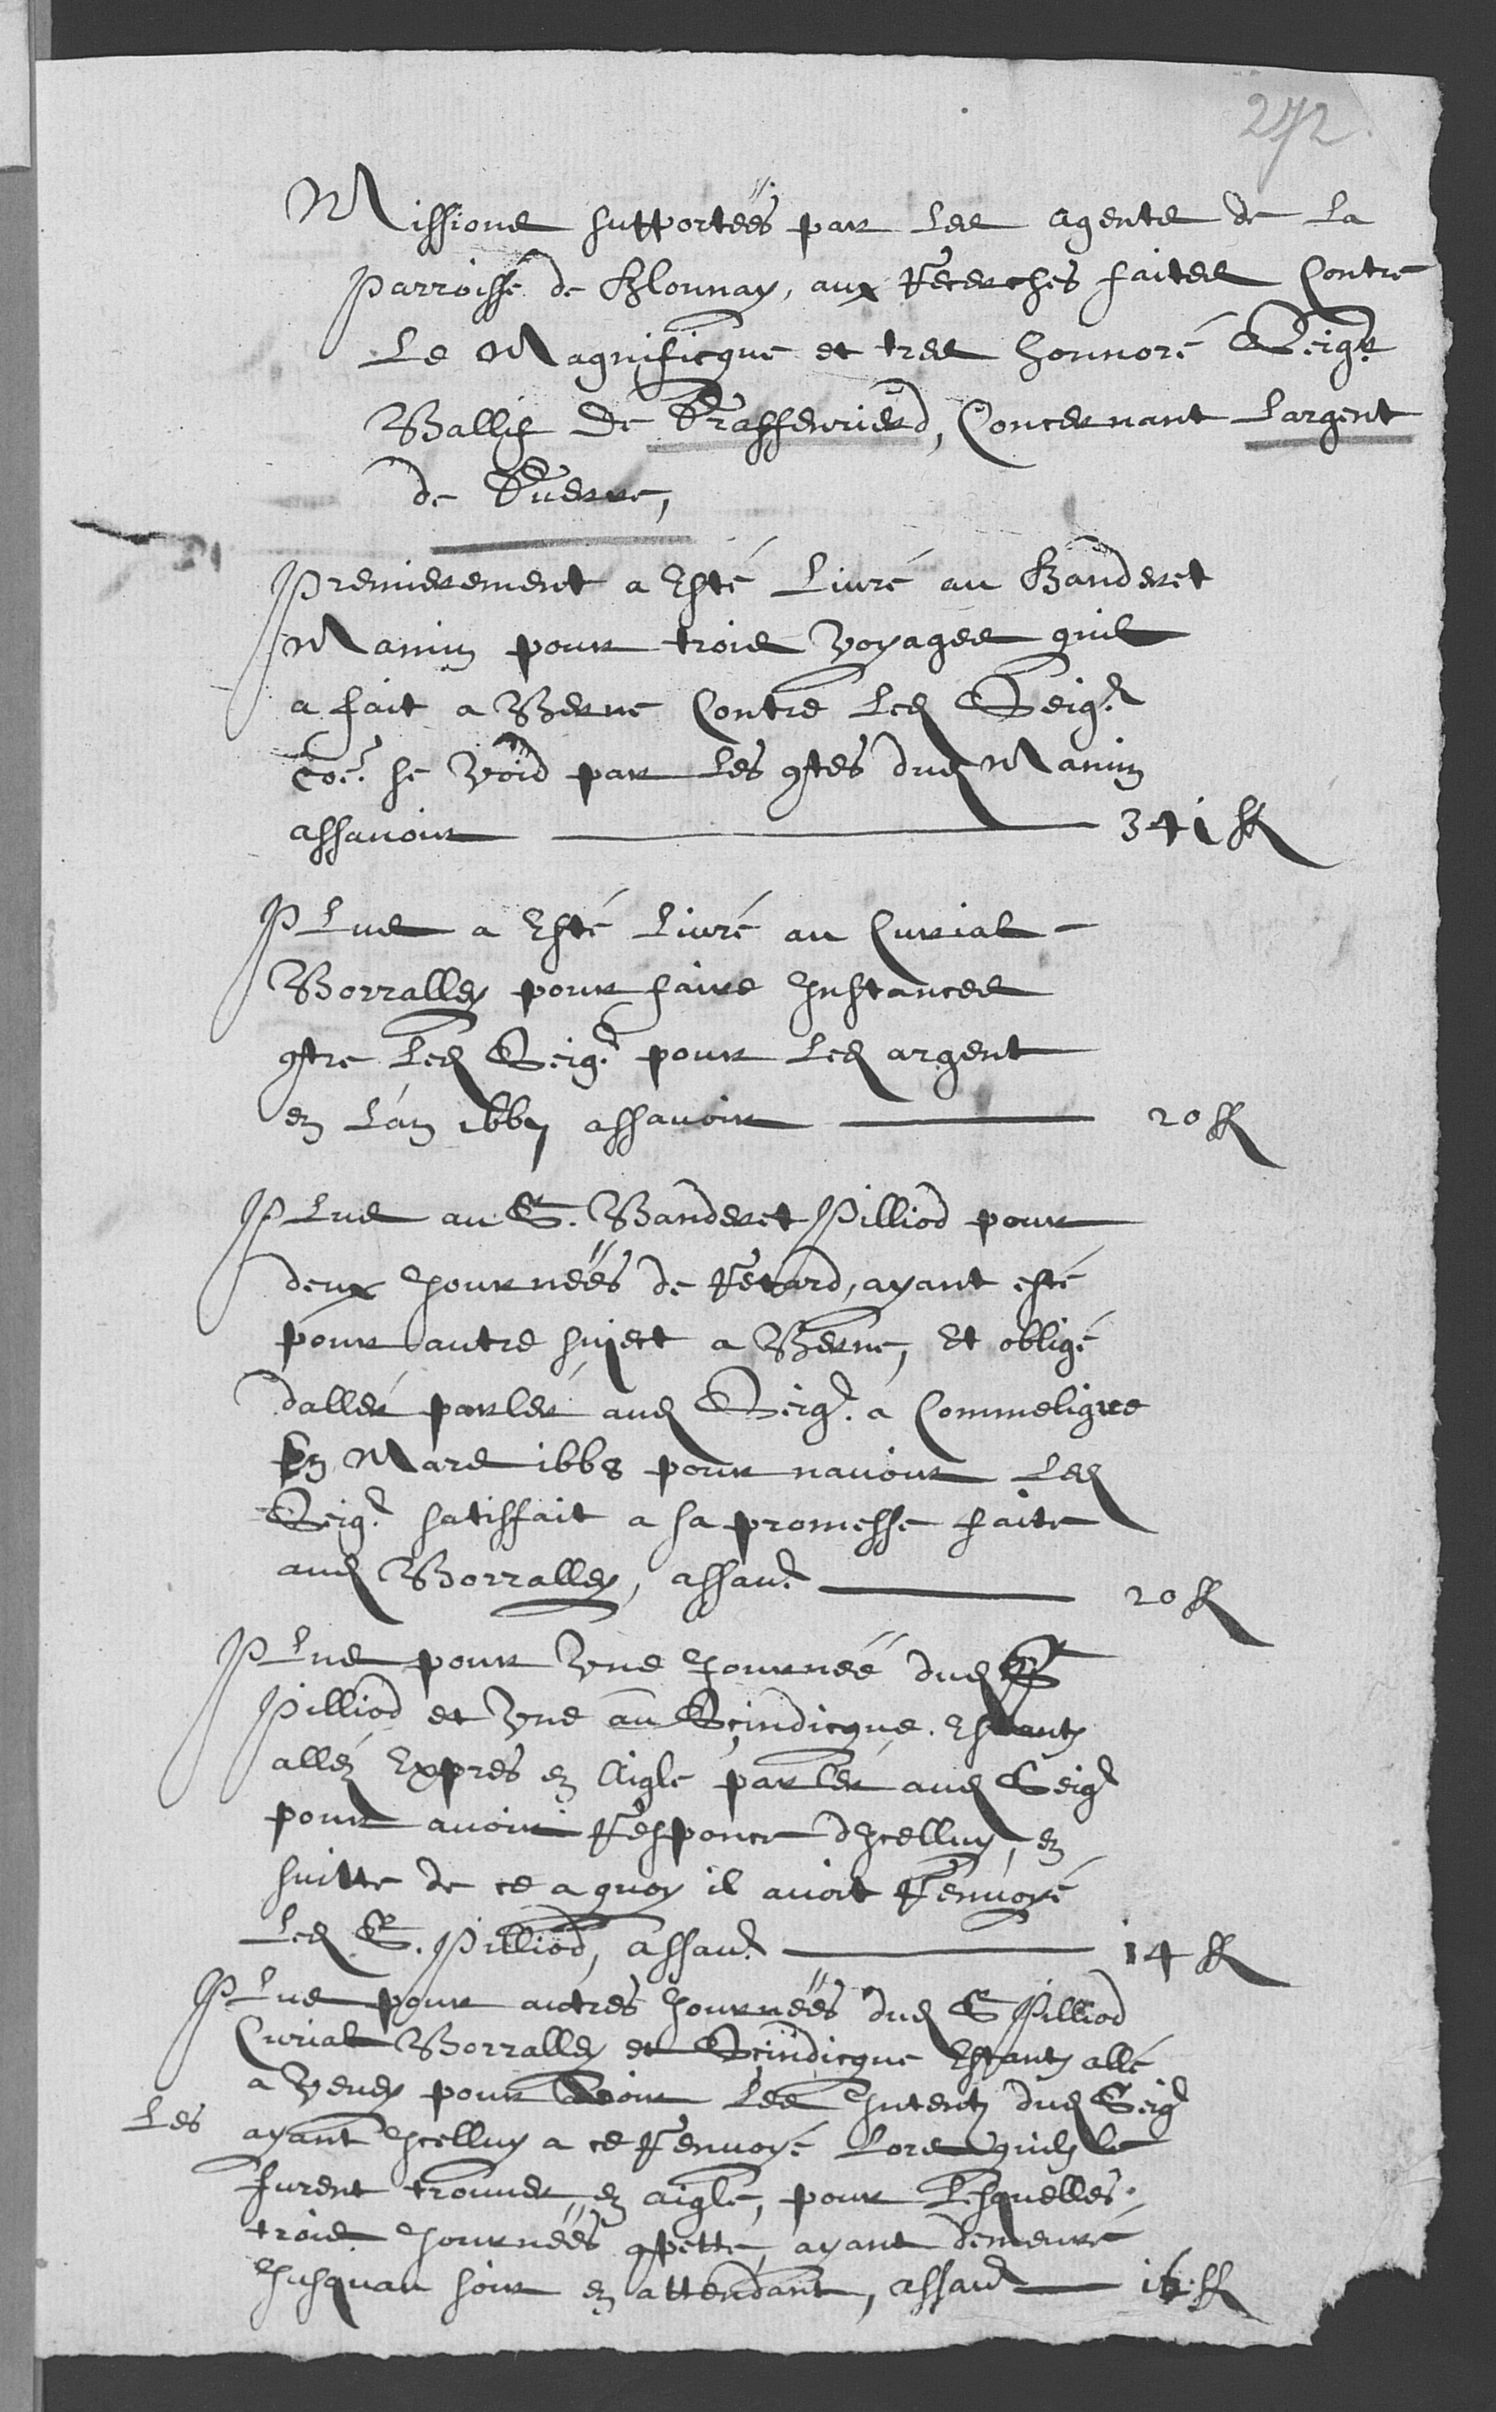 272
Missions supportéés par les agents de la
parroisse de Blonnay, aux Recerches faites Contre
Le Magnificque et tres honnoré Seigr
Ballif De Grassenried, Concernant Largent
de Guerre,
Premierement a Esté Livré au Banderet
Mamin pour trois voyages quil
a fait a Berne Contre Led Seigr
coe. se void par Les 9tes dud Mamin
assavoir 341 ff
Plus a Esté Livré au Curial
Borralley pour faire Instances
9tre Led Seigr pour Led argent
en Lan 1667 assavoir 20 ff
Plus au S. Banderet Pilliod pour
deux Journéés de Retard, ayant esté
pour autre suject a Berne, Et obligé
daller parler aud Seigr. a Commeligue
En Mars 1668 pour navoir Led
Seigr. satisfait a sa promesse faite
aud Borralley, assavr. 20 ff
Plus pour Une Journéé dud S
Pilliod et Une au Scindicque. Estantz
alléz Expres en Aigle parler aud Seigr
pour avoir Responce dIcelluy, en
suitte de ce a quoy il avoit Renvoyé
Led S. Pilliod, assavr. 14 ff
Plus pour autres Journéés dud S Pilliod
Curial Borralley et Scindicque Estantz allé
a Vevey pour Avoir Les Intentz dud Seigr
Les ayant Icelluy a ce Renvoyé Lors quilz le
furent trouver en aigle, pour Lesquelles
trois Journéés 9pette, ayant demeuré
Jusquau soir en attendant, assavr 16 ff